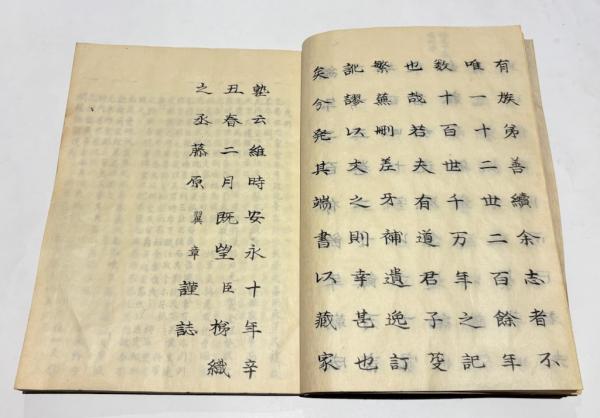 有族弟善續余志者不
唯一十二世二百餘年
数十百世千万年之記
也哉若夫有道君子芟
繁蕪刪差牙補遺逸訂
訛謬以文之則幸甚也
矣今発其端書以藏家
塾云維時安永十年辛
丑春二月既望臣梯織
之丞藤原翼章謹誌